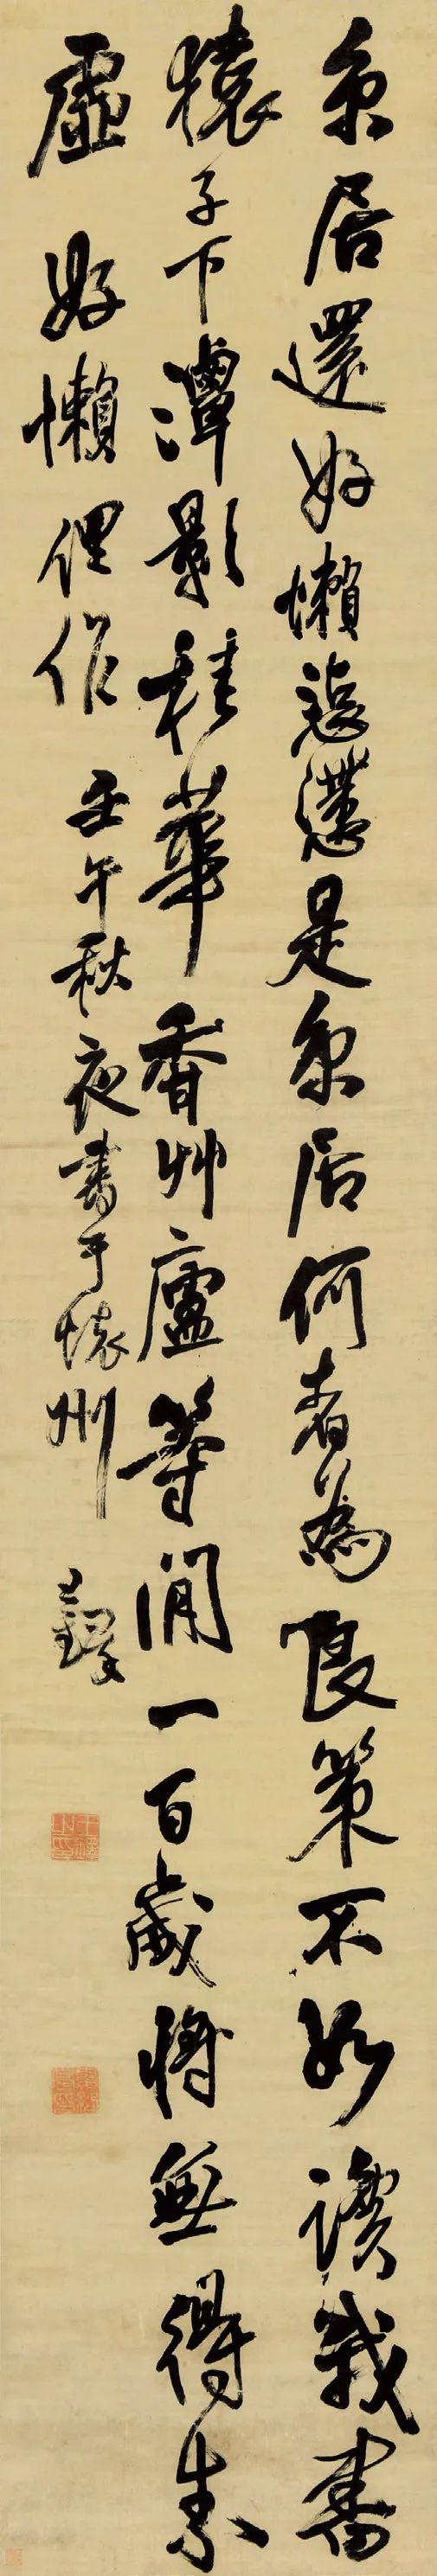 京居還好懶是京居何者為良策不如讀我書
猿子下潭影種華香艸廬等閒一百歲將無得
虛好懶俚作 壬午秋夜書于懷州 鐸
王鐸之印